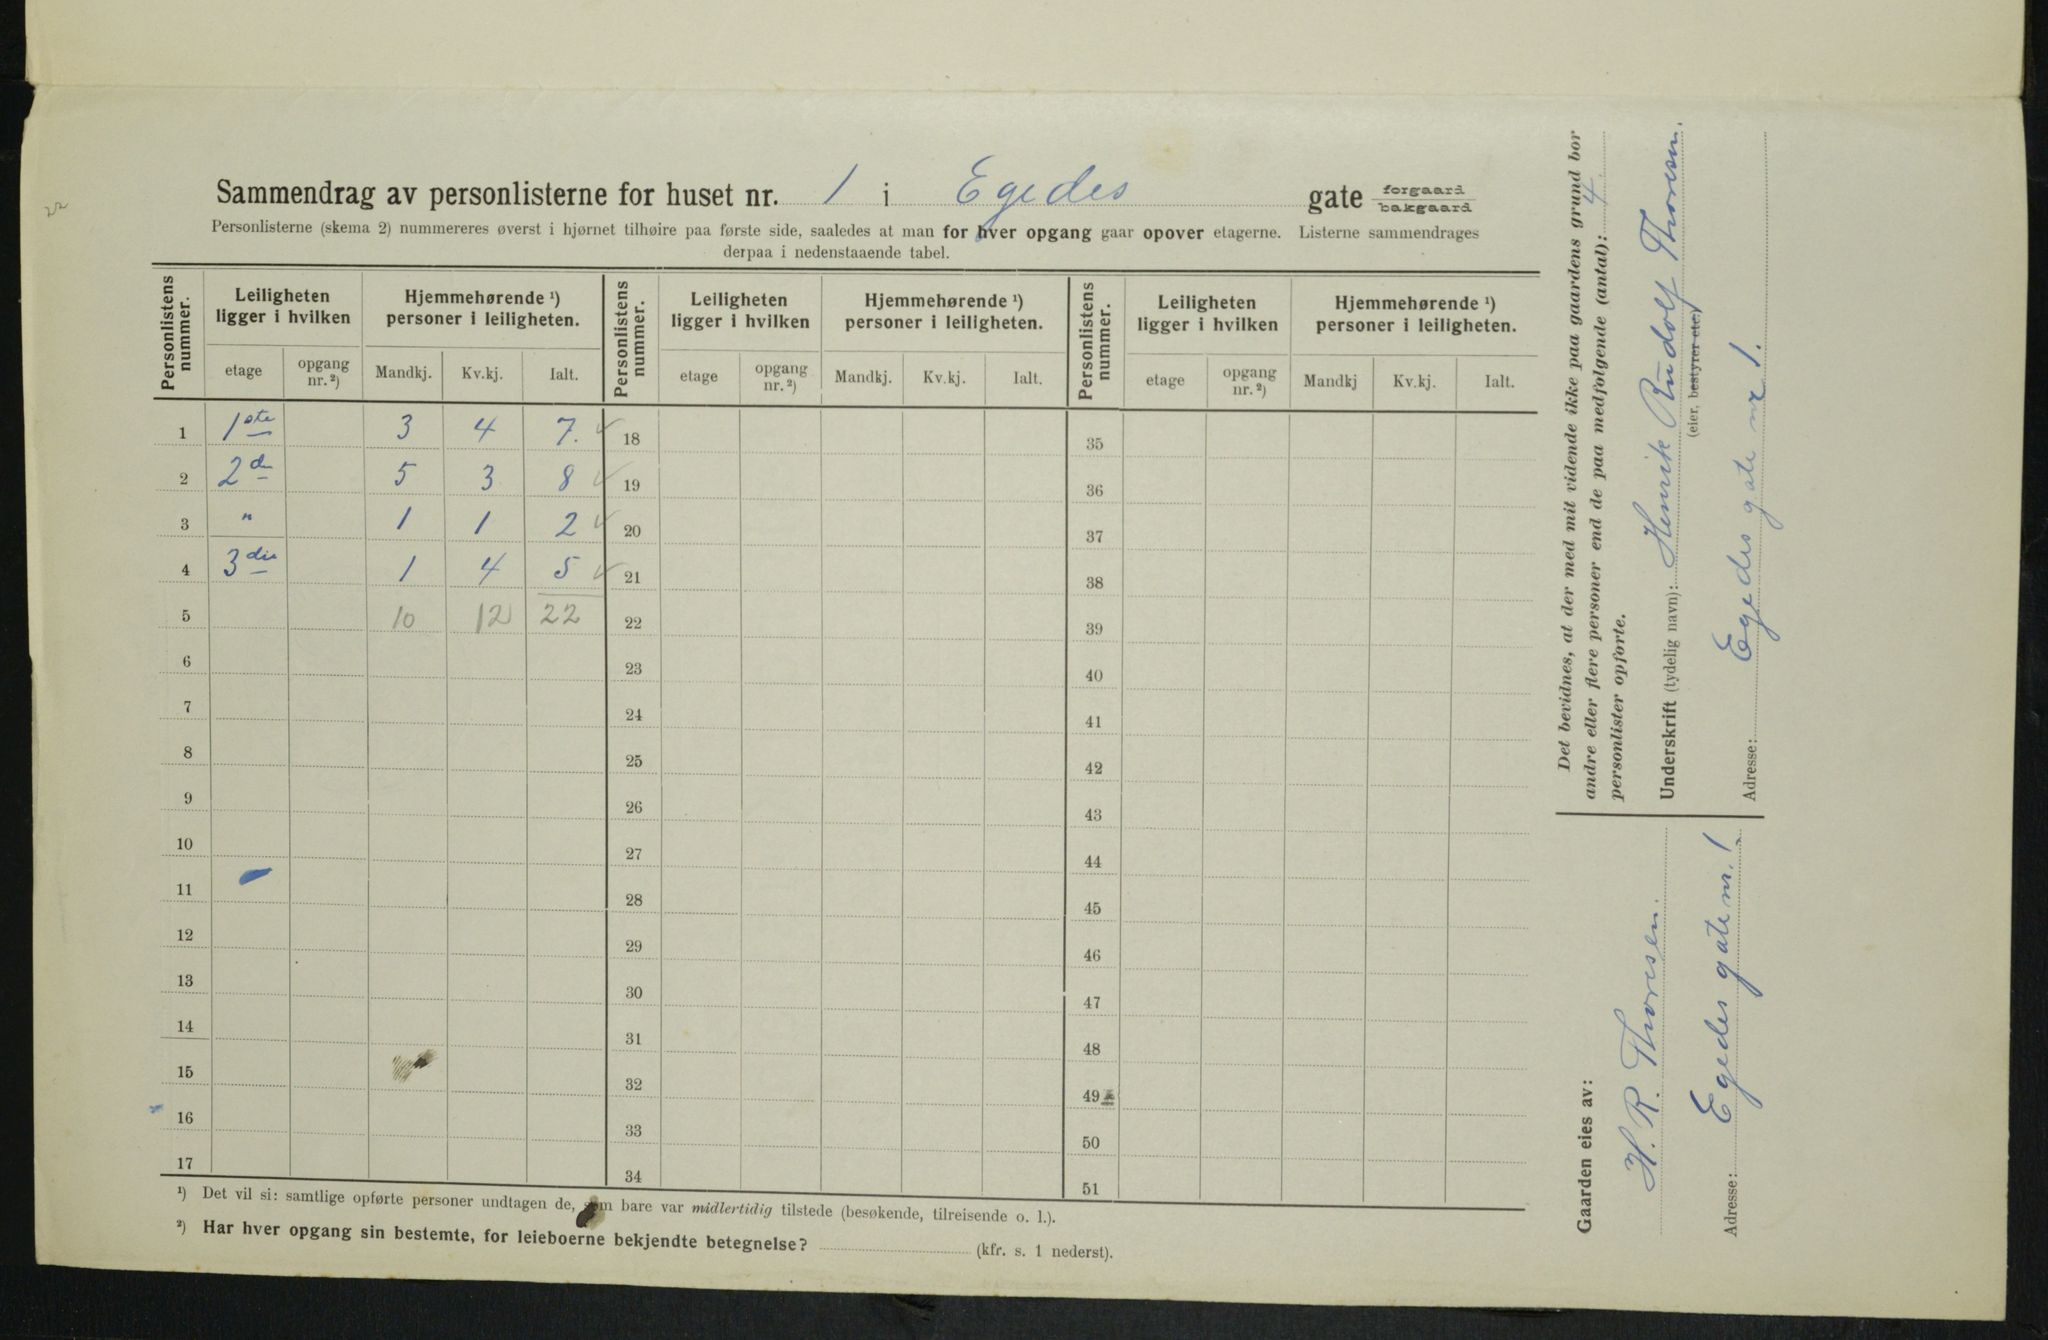 22
Sammendrag av personlisterne for huset nr. 1 i Egedes gate forgaard bakgaard
Personlisterne (skema 2) nummereres øverst i hjørnet tilhøire paa første side, saaledes at man for hver opgang gaar opover etagerne. Listerne sammendrages
derpaa i nedenstaaende tabel.
Personlistens nummer. Leiligheten ligger i hvilken Hjemmehørende ¹) personer i leiligheten. Personlistens nummer. Leiligheten ligger i hvilken Hjemmehørende ¹) personer i leiligheten. Personlistens nummer. Leiligheten ligger i hvilken Hjemmehørende ¹) personer i leiligheten.
etage opgang nr. ²) Mandkj. Kv.kj. Ialt. etage opgang nr. ²) Mandkj. Kv.kj. Ialt. etage opgang nr. ²) Mandkj Kv.kj. Ialt.
1 1ste 3 4 7. ✓ 18 35
2 2den 5 3 8 ✓ 19 36
3 " 1 1 2 ✓ 20 37
4 3die 1 4 5 ✓ 21 38
5 10 12 22 22 39
6 23 40
7 24 41
8 25 42
9 26 43
10 27 44
11 28 45
12 29 46
13 30 47
14 31 48
15 32 49
16 33 50
17 34 51
¹) Det vil si: samtlige opførte personer undtagen de, som bare var midlertidig tilstede (besøkende, tilreisende o. l.).
²) Har hver opgang sin bestemte, for leieboerne bekjendte betegnelse? (kfr. s. 1 nederst).
Det bevidnes, at der med mit vidende ikke paa gaardens grund bor
andre eller flere personer end de paa medfølgende (antal): 4
personlister opførte.
Underskrift (tydelig navn): Henrik Rudolf Thoresen.
(eier, bestyrer etc.)
Adresse: Egedes gate nr 1.
Gaarden eies av:
H. R. Thoresen.
Adresse: Egedes gate nr. 1.